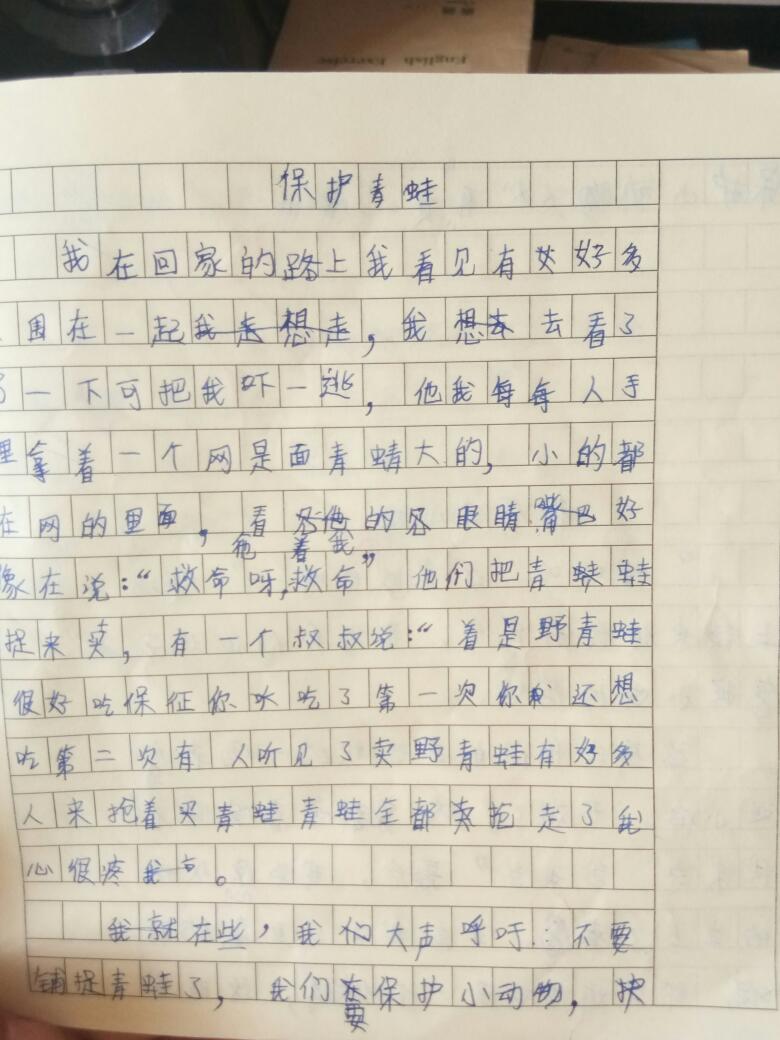 English Exercise
保护青蛙
我在回家的路上我看见有好多
围在一起，我去看了
一下可把我吓一逃，他我每每人手
里拿着一个网是面青蜻大的，小的都
在网的里面，看他的眼睛嘴巴好
像在说：“救命呀，救救我命”他们把青蛙
捉来卖，有一个叔叔说：“着是野青蛙
很好吃保证你吃了第一次你还想
吃第二次有人听见了卖野青蛙有好多
人来抢着买青蛙青蛙全都抢走了我
心很疼。
在些，我们大声呼吁：不要
捉青蛙了，我们要保护小动物，